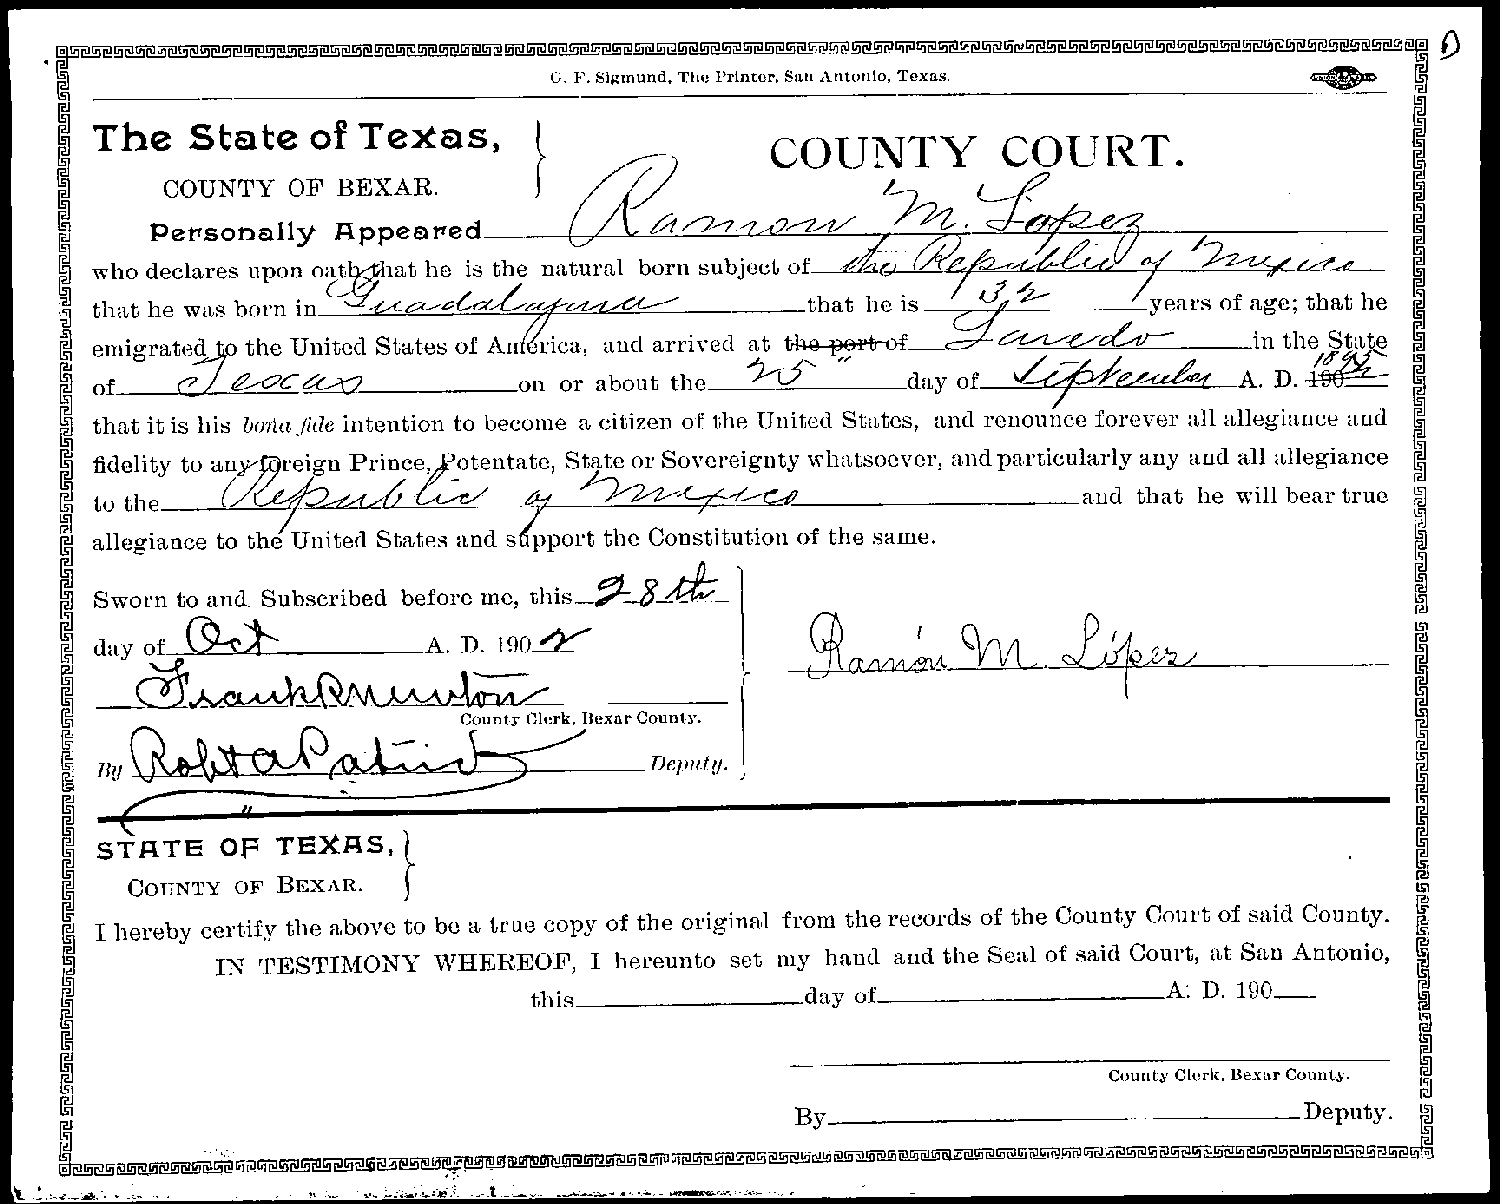 G. F. Sigmund, The Printer, San Antonio, Texas.
The State of Texas,
COUNTY OF BEXAR.
COUNTY COURT.
Personally Appeared Ramon M. Lopez
who declares upon oath that he is the natural born subject of the Republic of Mexico
that he was born in Guadalajara that he is 32 years of age; that he
emigrated to the United States of America, and arrived at the port of Laredo in the State
of Texas on or about the 25" day of September A. D. 190
that it is his bona fide intention to become a citizen of the United States, and renounce forever all allegiance and
fidelity to any foreign Prince, Potentate, State or Sovereignty whatsoever, and particularly any and all allegiance
to the Republic of Mexico and that he will bear true
allegiance to the United States and support the Constitution of the same.
Sworn to and Subscribed before me, this 28th
day of Oct A. D. 1902
Ramón M. López
Frank R Newton
County Clerk, Bexar County.
By Robt A Patrick Deputy.
STATE OF TEXAS,
COUNTY OF BEXAR.
I hereby certify the above to be a true copy of the original from the records of the County Court of said County.
IN TESTIMONY WHEREOF, I hereunto set my hand and the Seal of said Court, at San Antonio,
this day of A. D. 190
County Clerk, Bexar County.
By Deputy.